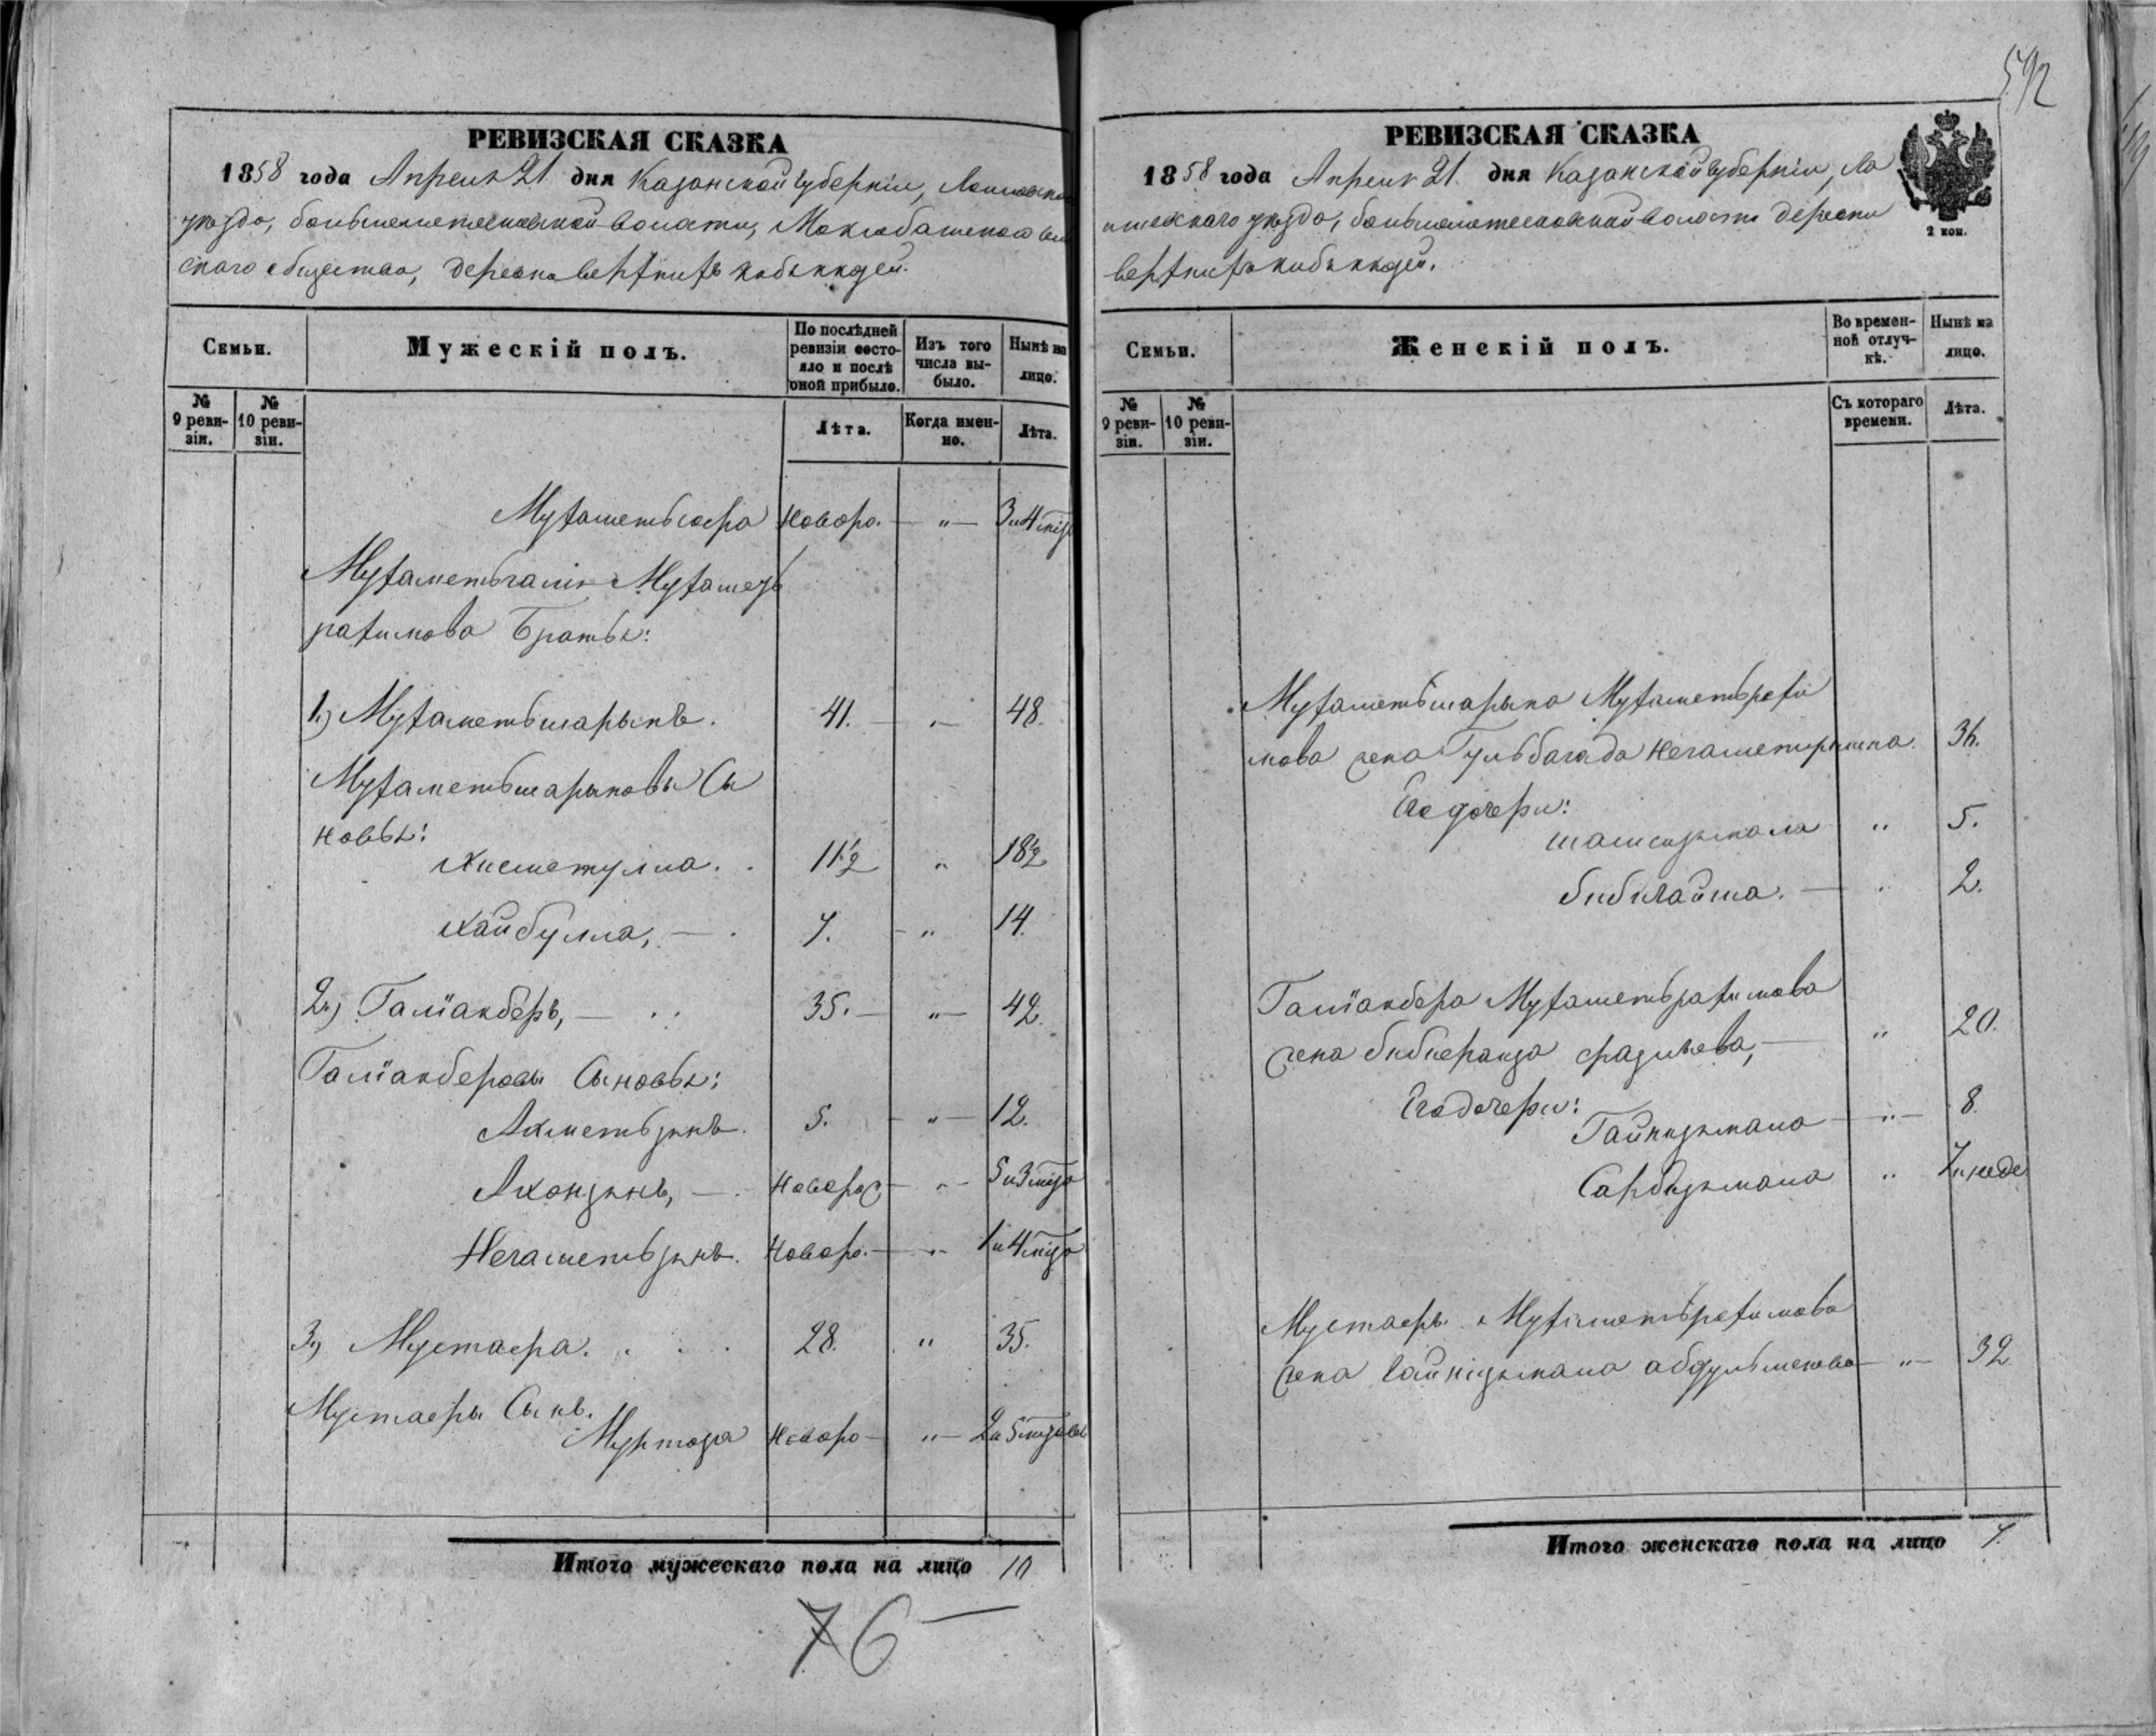 592
РЕВИЗСКАЯ СКАЗКА
1858 года Апреля 21 дня Казанской губернiи, Лаишевска
уезда, большеметескинской волости, Маклобашскаго сель
скаго общества, деревни верхнихъ кибякъкозей.
Семьи.
Мужескiй полъ.
По послѣдней ревизiи состояло и послѣ оной прибыло.
Изъ того числа выбыло.
Нынѣ на лицо.
№ 9 ревизiи.
№ 10 ревизiи.
Лѣта.
Когда именно.
Лѣта.
Мухаметьсафа Новоро. — " — 3 и 4 мѣз
Мухаметьгалiя Мухаметь
рахимова Братья:
1.) Мухаметьшарыпъ. 41. — " — 48.
Мухаметьшарыповы Сы
новья:
Хисметулла. 11½ " 18½
Хайбулла, — 7. — " 14.
2.) Галiакберъ, — 35. — " — 42.
Галiакберовы Сыновья:
Ахметьзянъ. 5. — " — 12.
Ахонзянъ, — Новорож — " — 5 и 3 мѣзо
Негаметьзянъ. Новоро. — " 1 и 4 мѣзо
3.) Мустафа. 28. " 35.
Мустафы Сынъ.
Муртоза Новоро — " — 2 и 5 мѣзовъ
Итого мужескаго пола на лицо 10
76 —
РЕВИЗСКАЯ СКАЗКА
1858 года Апреля 21. дня Казанской губернiи, Ла
ишевскаго уезда, большеметескинской волости деревни
верхнихъ кибякъкозей.
2 коп.
Семьи.
Женскiй полъ.
Во временной отлучкѣ.
Нынѣ на лицо.
№ 9 ревизiи.
№ 10 ревизiи.
Съ котораго времени.
Лѣта.
Мухаметьшарыпа Мухаметьрахи
мова жена Гульбагада 36.
Его дочери:
шамсизямала " 5.
бибигайша. — " 2.
Галiакбера Мухаметьрахимова
жена бибиеранза фазлыева, — " 20.
Его дочери:
Гайнизямала — " — 8.
Сарбизямала " 7 и неде
Мустафы Мухаметьрахимова
жена Гайнiзямала — " — 32
Итого женскаго пола на лицо 7.